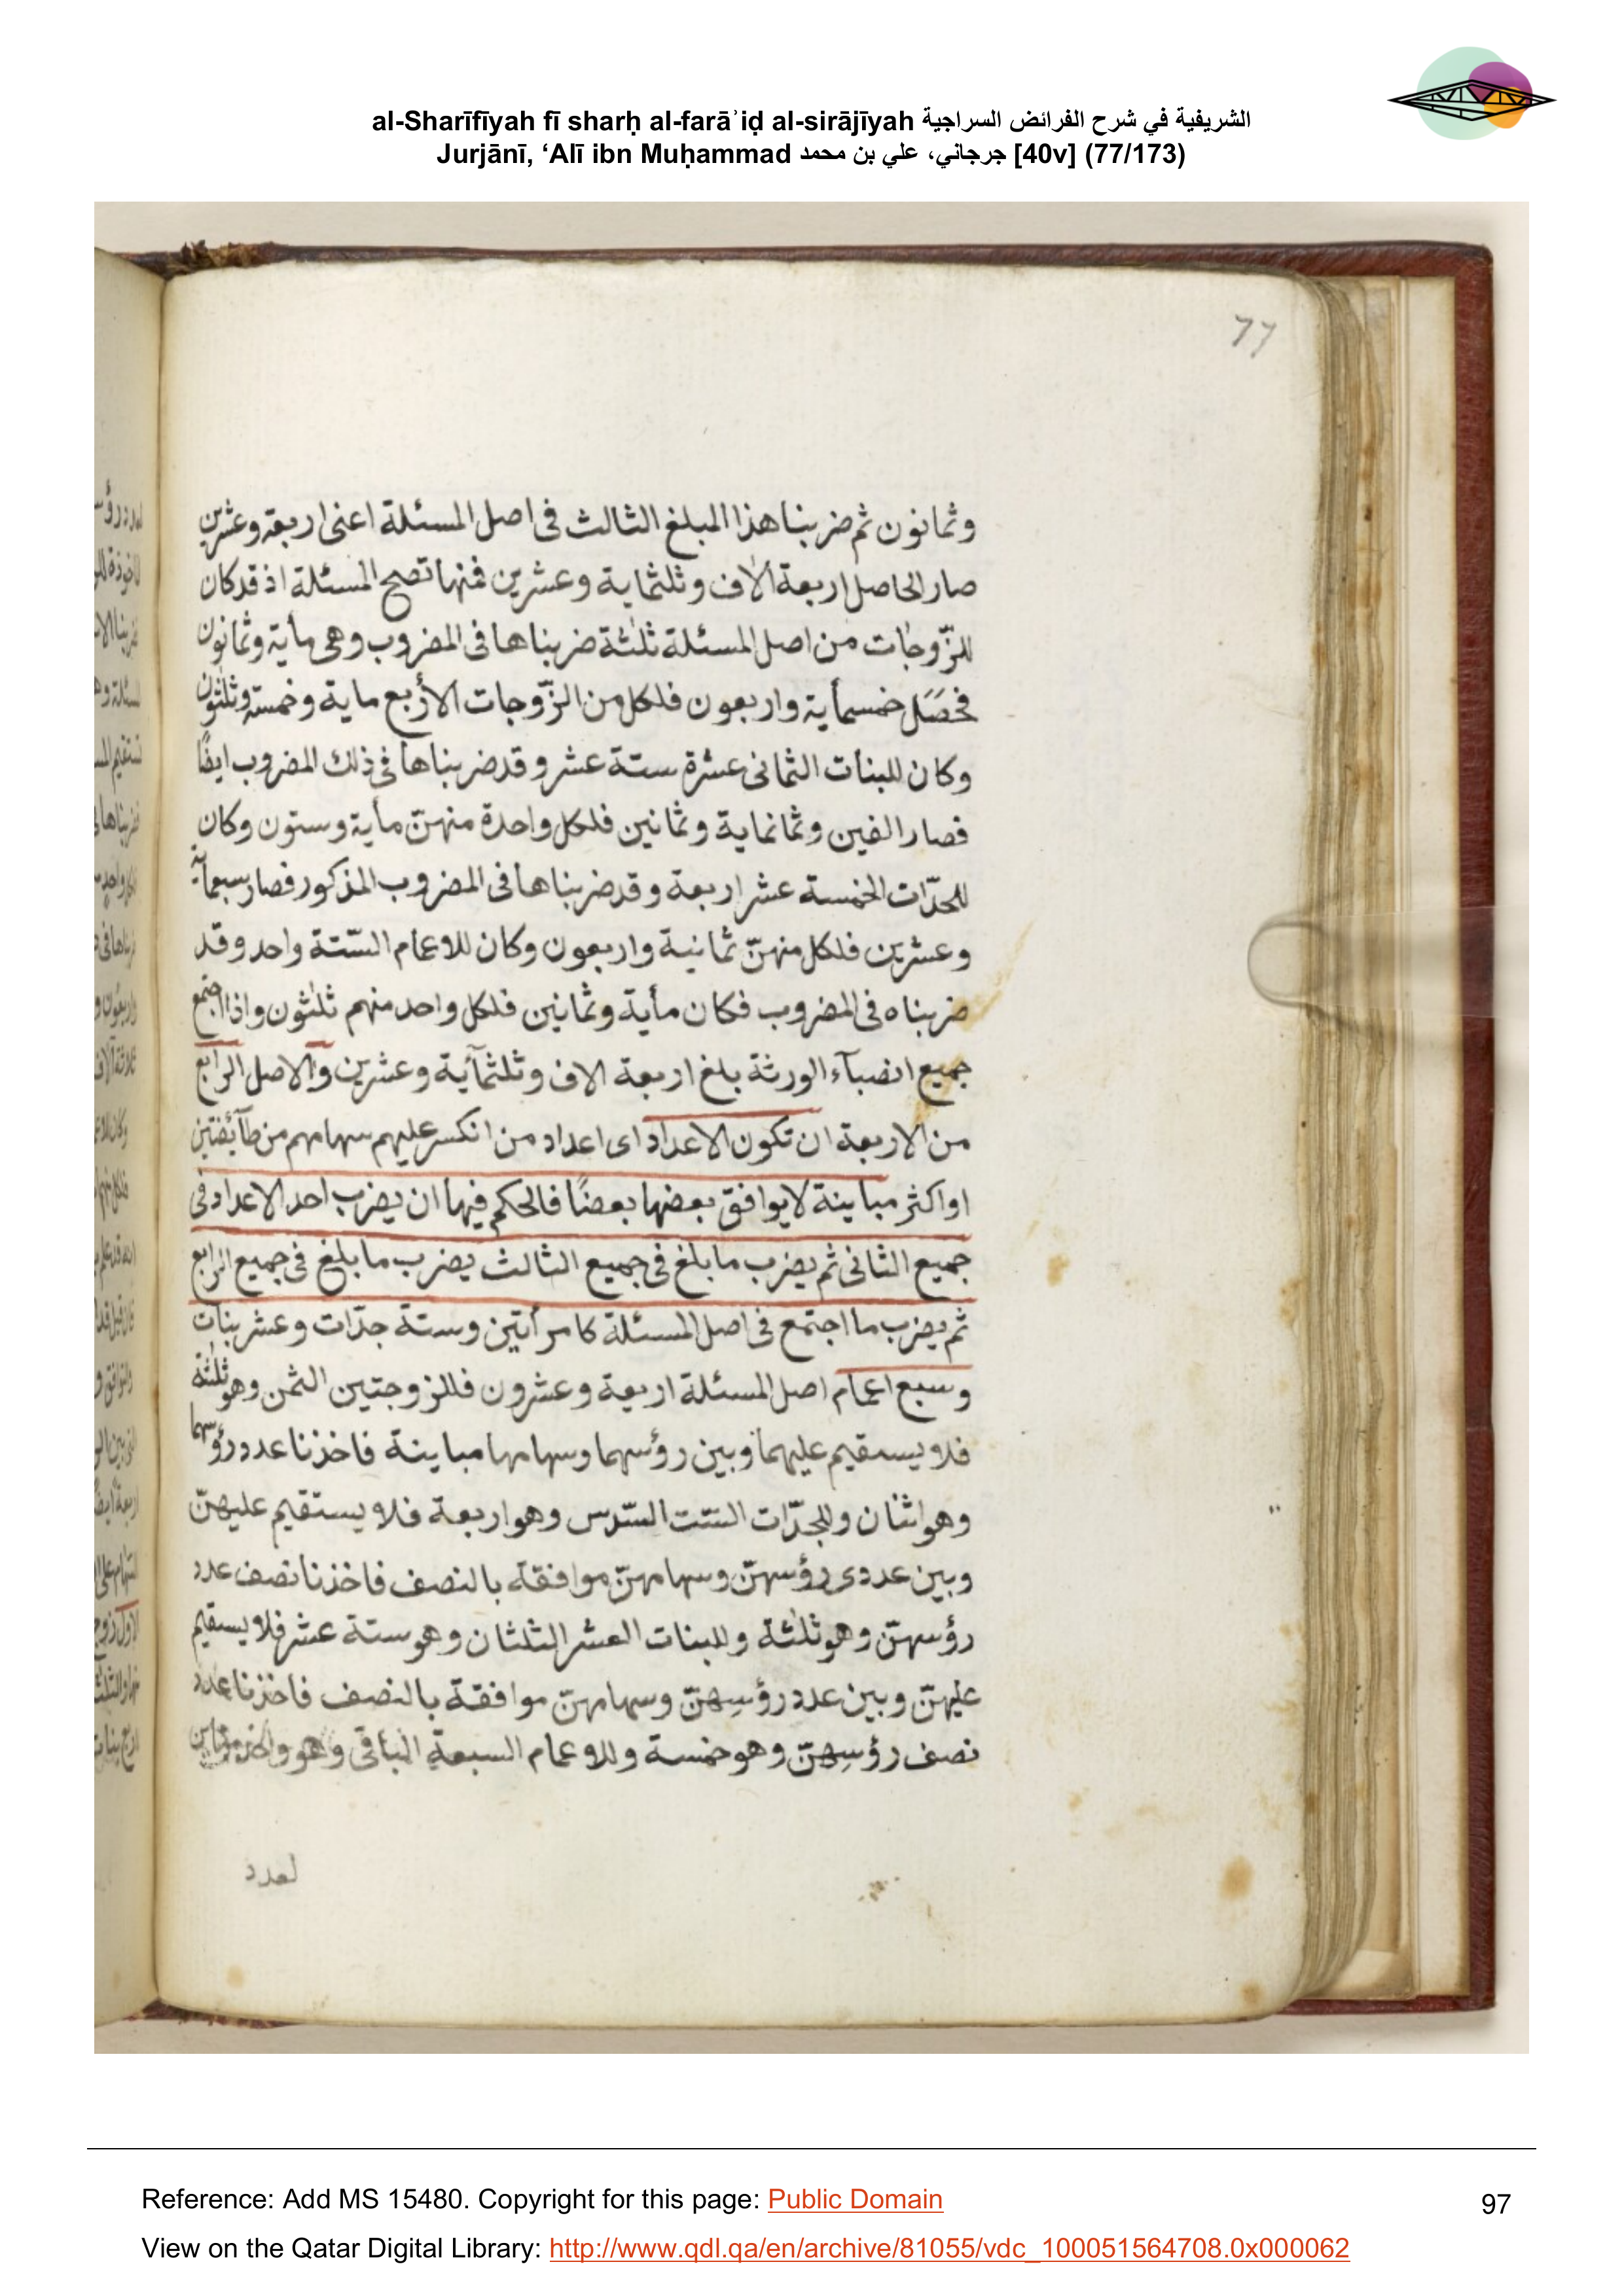 al-Sharīfīyah fī sharḥ al-farāʾiḍ al-sirājīyah الشريفية في شرح الفرائض السراجية
Jurjānī, ‘Alī ibn Muḥammad جرجاني، علي بن محمد [40v] (77/173)
77
وثمانون ثم ضربنا هذا المبلغ الثالث فى اصل المسئلة اعنى اربعة وعشرين
صار الحاصل اربعة الاف وثلثماية وعشرين فمنها تصح المسئلة اذ قد كان
للزّوجات من اصل المسئلة ثلثة ضربناها فى المضروب وهى مأية وثمانون
فحصَل خمسمأية واربعون فلكل من الزّوجات الأربع ماية وخمسة وثلثون
وكان للبنات الثمانى عشرة ستة عشر وقد ضربناها فى ذلك المضروب ايضًا
فصار الفين وثمانماية وثمانين فلكل واحدة منهنّ مأية وستون وكان
للجدّات الخمسة عشر اربعة وقد ضربناها فى المضروب المذكور فصار سبعمأية
وعشرين فلكل منهنّ ثمانية واربعون وكان للاعمام الستّة واحد وقد
ضربناه فى المضروب فكان مأية وثمانين فلكل واحد منهم ثلثون واذا اجتمع
جميع انصبآء الورثة بلغ اربعة الاف وثلثمآئية وعشرين والاصل الرابع
من الاربعة ان تكون الاعداد اى اعداد من انكسر عليهم سهامهم من طآئفتين
او اكثر مباينة لا يوافق بعضها بعضًا فالحكم فيها ان يضرب احد الاعداد فى
جميع الثانى ثم يضرب ما بلغ فى جميع الثالث يضرب ما بلغ فى جميع الرابع
ثم يضرب ما اجتمع فى اصل المسئلة كامرأتين وستة جدّات وعشر بنات
وسبع اعمام اصل المسئلة اربعة وعشرون فللزوجتين الثمن وهو ثلثة
فلا يستقيم عليهما وبين رؤسهما وسهامها مباينة فاخذنا عدد رؤسهما
وهو اثنان وللجدّات الستت السّدس وهو اربعة فلا يستقيم عليهنّ
وبين عددى رؤسهنّ وسهامهنّ موافقة بالنصف فاخذنا نصف عدد
رؤسهنّ وهو ثلثة وللبنات العشر الثلثان وهو ستة عشر فلا يستقيم
عليهنّ وبين عدد رؤسِهنّ وسهامهنّ موافقة بالنصف فاخذنا عدد
نصف رؤسِهنّ وهو خمسة وللاعمام السبعة الباقى وهو
لعدد
Reference: Add MS 15480. Copyright for this page: Public Domain
97
View on the Qatar Digital Library: http://www.qdl.qa/en/archive/81055/vdc_100051564708.0x000062